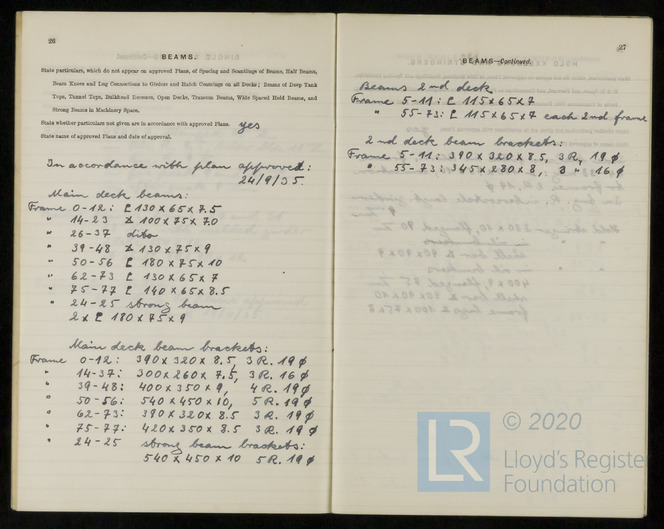 26
BEAMS.
State particulars, which do not appear on approved Plans, of Spacing and Scantlings of Beams, Half Beams,
Beam Knees and Lug Connections to Girders and Hatch Coamings on all Decks; Beams of Deep Tank
Tops, Tunnel Tops, Bulkhead Recesses, Open Decks, Transom Beams, Wide Spaced Hold Beams, and
Strong Beams in Machinery Space.
State whether particulars not given are in accordance with approved Plans. yes
State name of approved Plans and date of approval.
In accordance with plan approved:
24/9/35.
Main deck beams:
Frame 0-12: [ 130 x 65 x 7.5
" 14-23 ∠ 100 x 75 x 7.0
" 26-37 ditto
" 39-48 ∠ 130 x 75 x 9
" 50-56 [ 180 x 75 x 10
" 62-73 [ 130 x 65 x 7
" 75-77 [ 140 x 65 x 8.5
" 24-25 strong beam
2 x [ 180 x 75 x 9
Main deck beam brackets:
Frame 0-12: 390 x 320 x 8.5, 3 R. 19 ø
" 14-37: 300 x 260 x 7.5, 3 R. 16 ø
" 39-48: 400 x 350 x 9, 4 R. 19 ø
" 50-56: 540 x 450 x 10, 5 R. 19 ø
" 62-73: 390 x 320 x 8.5 3 R. 19 ø
" 75-77: 420 x 350 x 8.5 3 R. 19 ø
" 24-25 strong beam brackets:
540 x 450 x 10 5 R. 19 ø
27
BEAMS—Continued.
Beams 2nd deck
Frame 5-11: [ 115 x 65 x 7
" 55-73: [ 115 x 65 x 7 each 2nd frame
2nd deck beam brackets:
Frame 5-11: 390 x 320 x 8.5, 3 R, 19 ø
" 55-73: 345 x 280 x 8, 3 " 16 ø
LR
© 2020
Lloyd's Register
Foundation